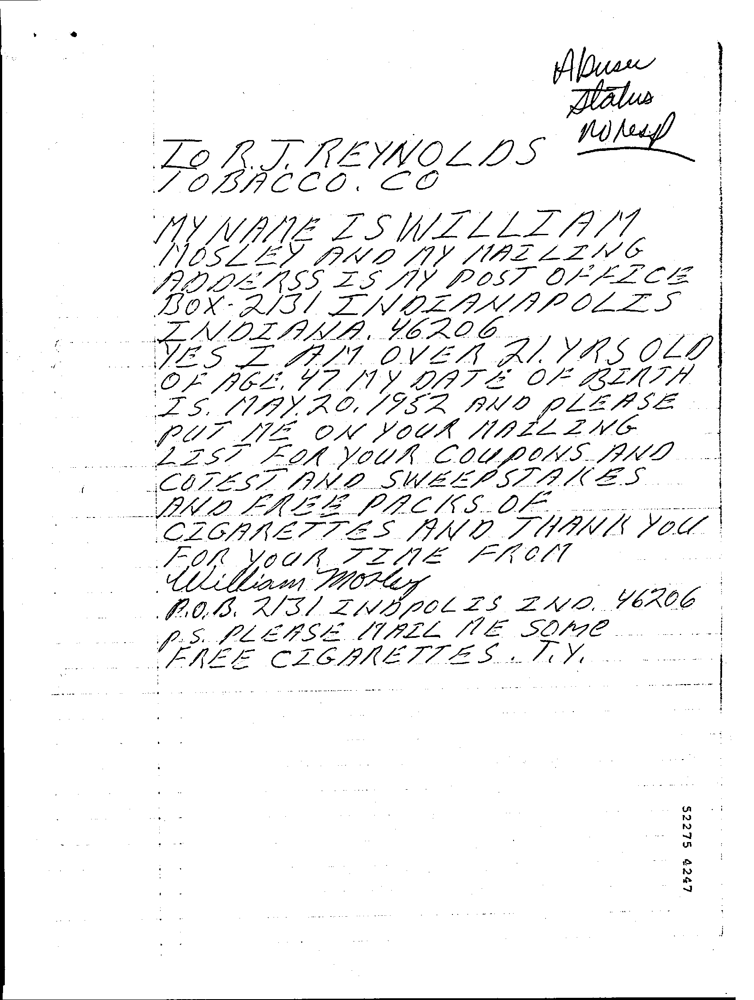 Abuser
Status
no resp
TO R.J. REYNOLDS
TOBACCO. CO
MY NAME IS WILLIAM
MOSLEY AND MY MAILING
ADDERSS IS MY POST OFFICE
BOX-2131 INDIANAPOLIS
INDIANA. 46206
YES I AM OVER 21.YRS OLD
OF AGE. 47 MY DATE OF BIRTH
IS. MAY.20.1952 AND PLEASE
PUT ME ON YOUR MAILING
LIST FOR YOUR COUPONS AND
COTEST AND SWEEPSTAKES
AND FREE PACKS OF
CIGARETTES AND THANK YOU
FOR YOUR TIME FROM
William Mosley
P.O.B. 2131 INDPOLIS IND. 46206
P.S. PLEASE MAIL ME SOME
FREE CIGARETTES. T.Y.
52275 4247